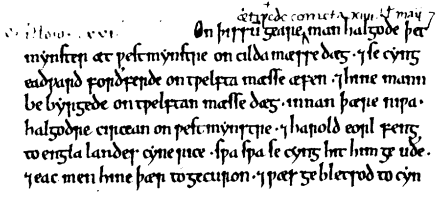 cometa xiiii kl mai
On þissū geare man halgode þet
mynster æt westmynstre on cilda mæsse dæg. ⁊ se cyng
eadward forðferde on twelfta mæsse æfen. ⁊ hine mann
be byrgede on twelftan mæsse dæg. innan þære niwa
halgodre circean on westmynstre. ⁊ harold eorl feng
to engla landes cyne rice. swa swa se cyng hit him ge uðe.
⁊ eac men hine þær to gecuron. ⁊ wæs ge bletsod to cyn